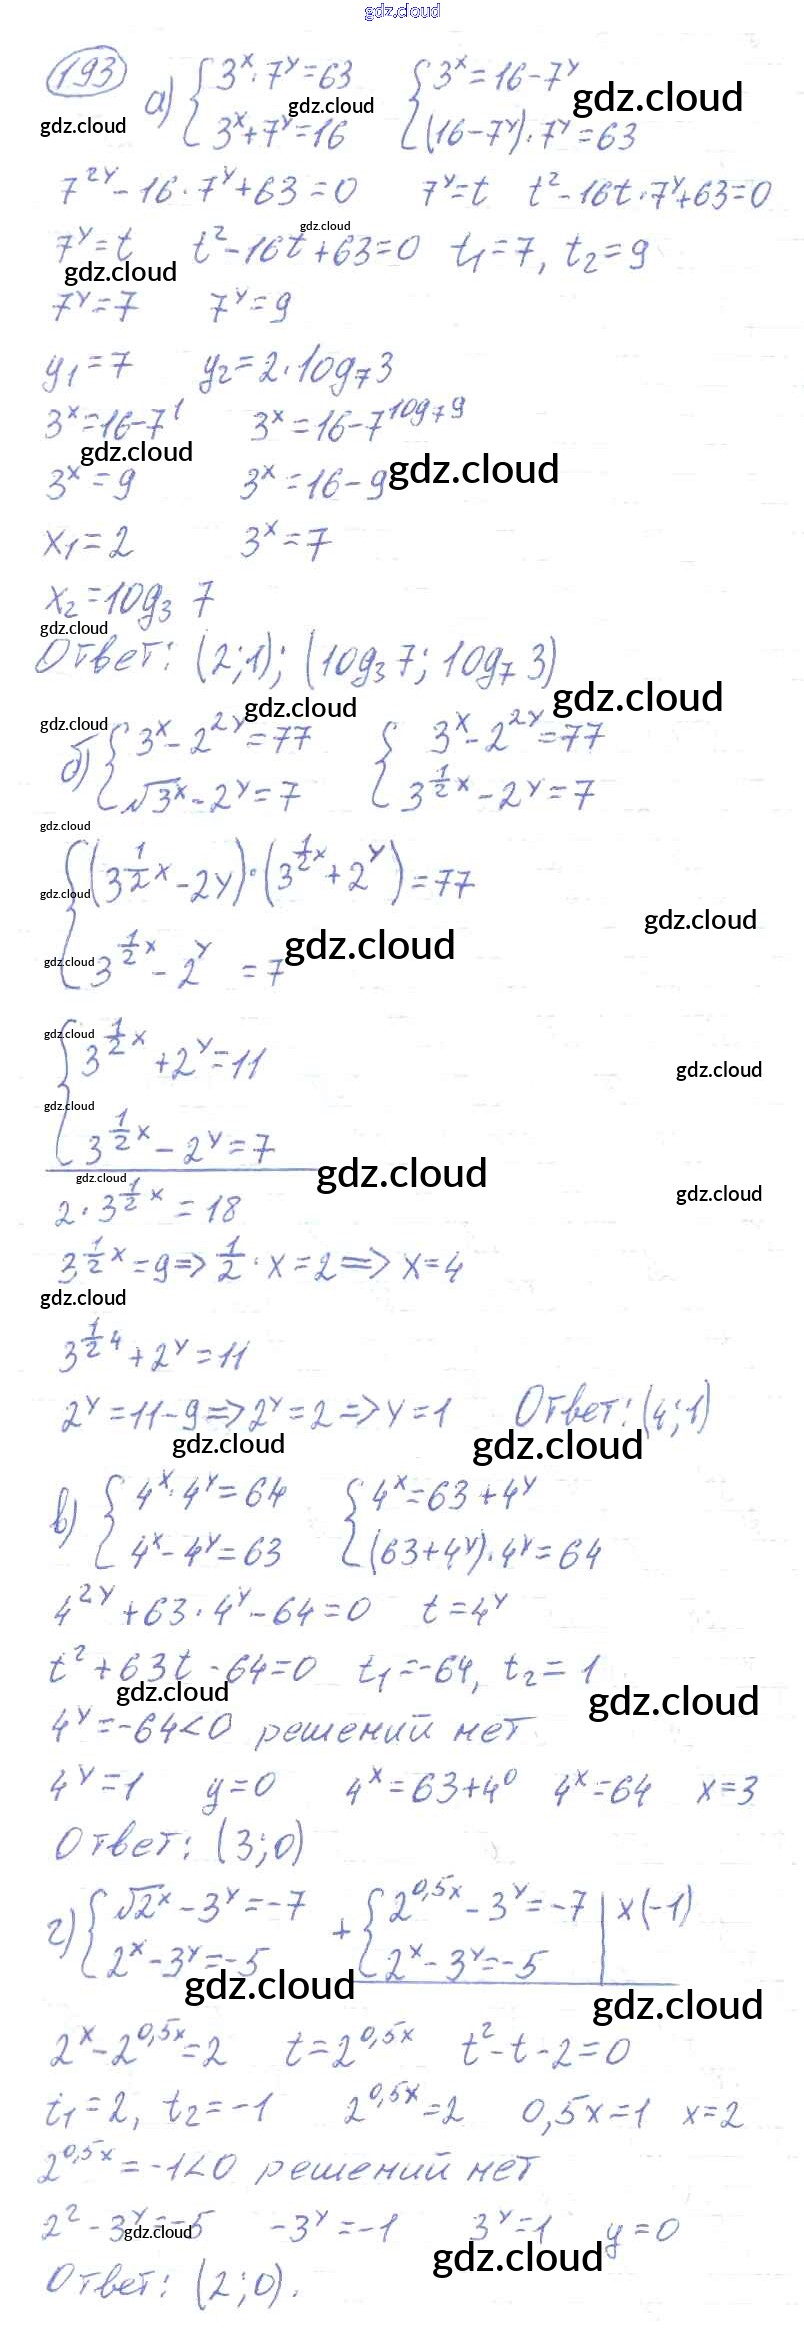 gdz.cloud
193 а) { 3^x · 7^y = 63 { 3^x = 16 - 7^y gdz.cloud
gdz.cloud { 3^x + 7^y = 16 gdz.cloud { (16 - 7^y) · 7^y = 63
7^2y - 16 · 7^y + 63 = 0 7^y = t t^2 - 16t · 7^y + 63 = 0
gdz.cloud
7^y = t t^2 - 16t + 63 = 0 t1 = 7, t2 = 9
gdz.cloud
7^y = 7 7^y = 9
y1 = 7 y2 = 2 · log7 3
3^x = 16 - 7^1 3^x = 16 - 7^log7 9
gdz.cloud
3^x = 9 3^x = 16 - 9 gdz.cloud
x1 = 2 3^x = 7
x2 = log3 7
gdz.cloud
Ответ: (2; 1); (log3 7; log7 3)
gdz.cloud gdz.cloud gdz.cloud
б) { 3^x - 2^2y = 77 { 3^x - 2^2y = 77
{ √3^x - 2^y = 7 { 3^1/2 x - 2^y = 7
gdz.cloud
{ (3^1/2 x - 2y) · (3^1/2 x + 2^y) = 77
gdz.cloud gdz.cloud
{ 3^1/2 x - 2^y = 7 gdz.cloud
gdz.cloud
gdz.cloud
{ 3^1/2 x + 2^y = 11
gdz.cloud
gdz.cloud
{ 3^1/2 x - 2^y = 7
gdz.cloud gdz.cloud gdz.cloud
2 · 3^1/2 x = 18
3^1/2 x = 9 => 1/2 · x = 2 => x = 4
gdz.cloud
3^1/2 4 + 2^y = 11
2^y = 11 - 9 => 2^y = 2 => y = 1 Ответ: (4; 1)
gdz.cloud gdz.cloud
в) { 4^x · 4^y = 64 { 4^x = 63 + 4^y
{ 4^x - 4^y = 63 { (63 + 4^y) · 4^y = 64
4^2y + 63 · 4^y - 64 = 0 t = 4^y
t^2 + 63t - 64 = 0 t1 = -64, t2 = 1
gdz.cloud gdz.cloud
4^y = -64 < 0 решений нет
4^y = 1 y = 0 4^x = 63 + 4^0 4^x = 64 x = 3
Ответ: (3; 0)
г) { √2^x - 3^y = -7 + { 2^0,5x - 3^y = -7 | x(-1)
{ 2^x - 3^y = -5 { 2^x - 3^y = -5
gdz.cloud gdz.cloud
2^x - 2^0,5x = 2 t = 2^0,5x t^2 - t - 2 = 0
t1 = 2, t2 = -1 2^0,5x = 2 0,5x = 1 x = 2
2^0,5x = -1 < 0 решений нет
2^2 - 3^y = -5 -3^y = -1 3^y = 1 y = 0
gdz.cloud gdz.cloud
Ответ: (2; 0).